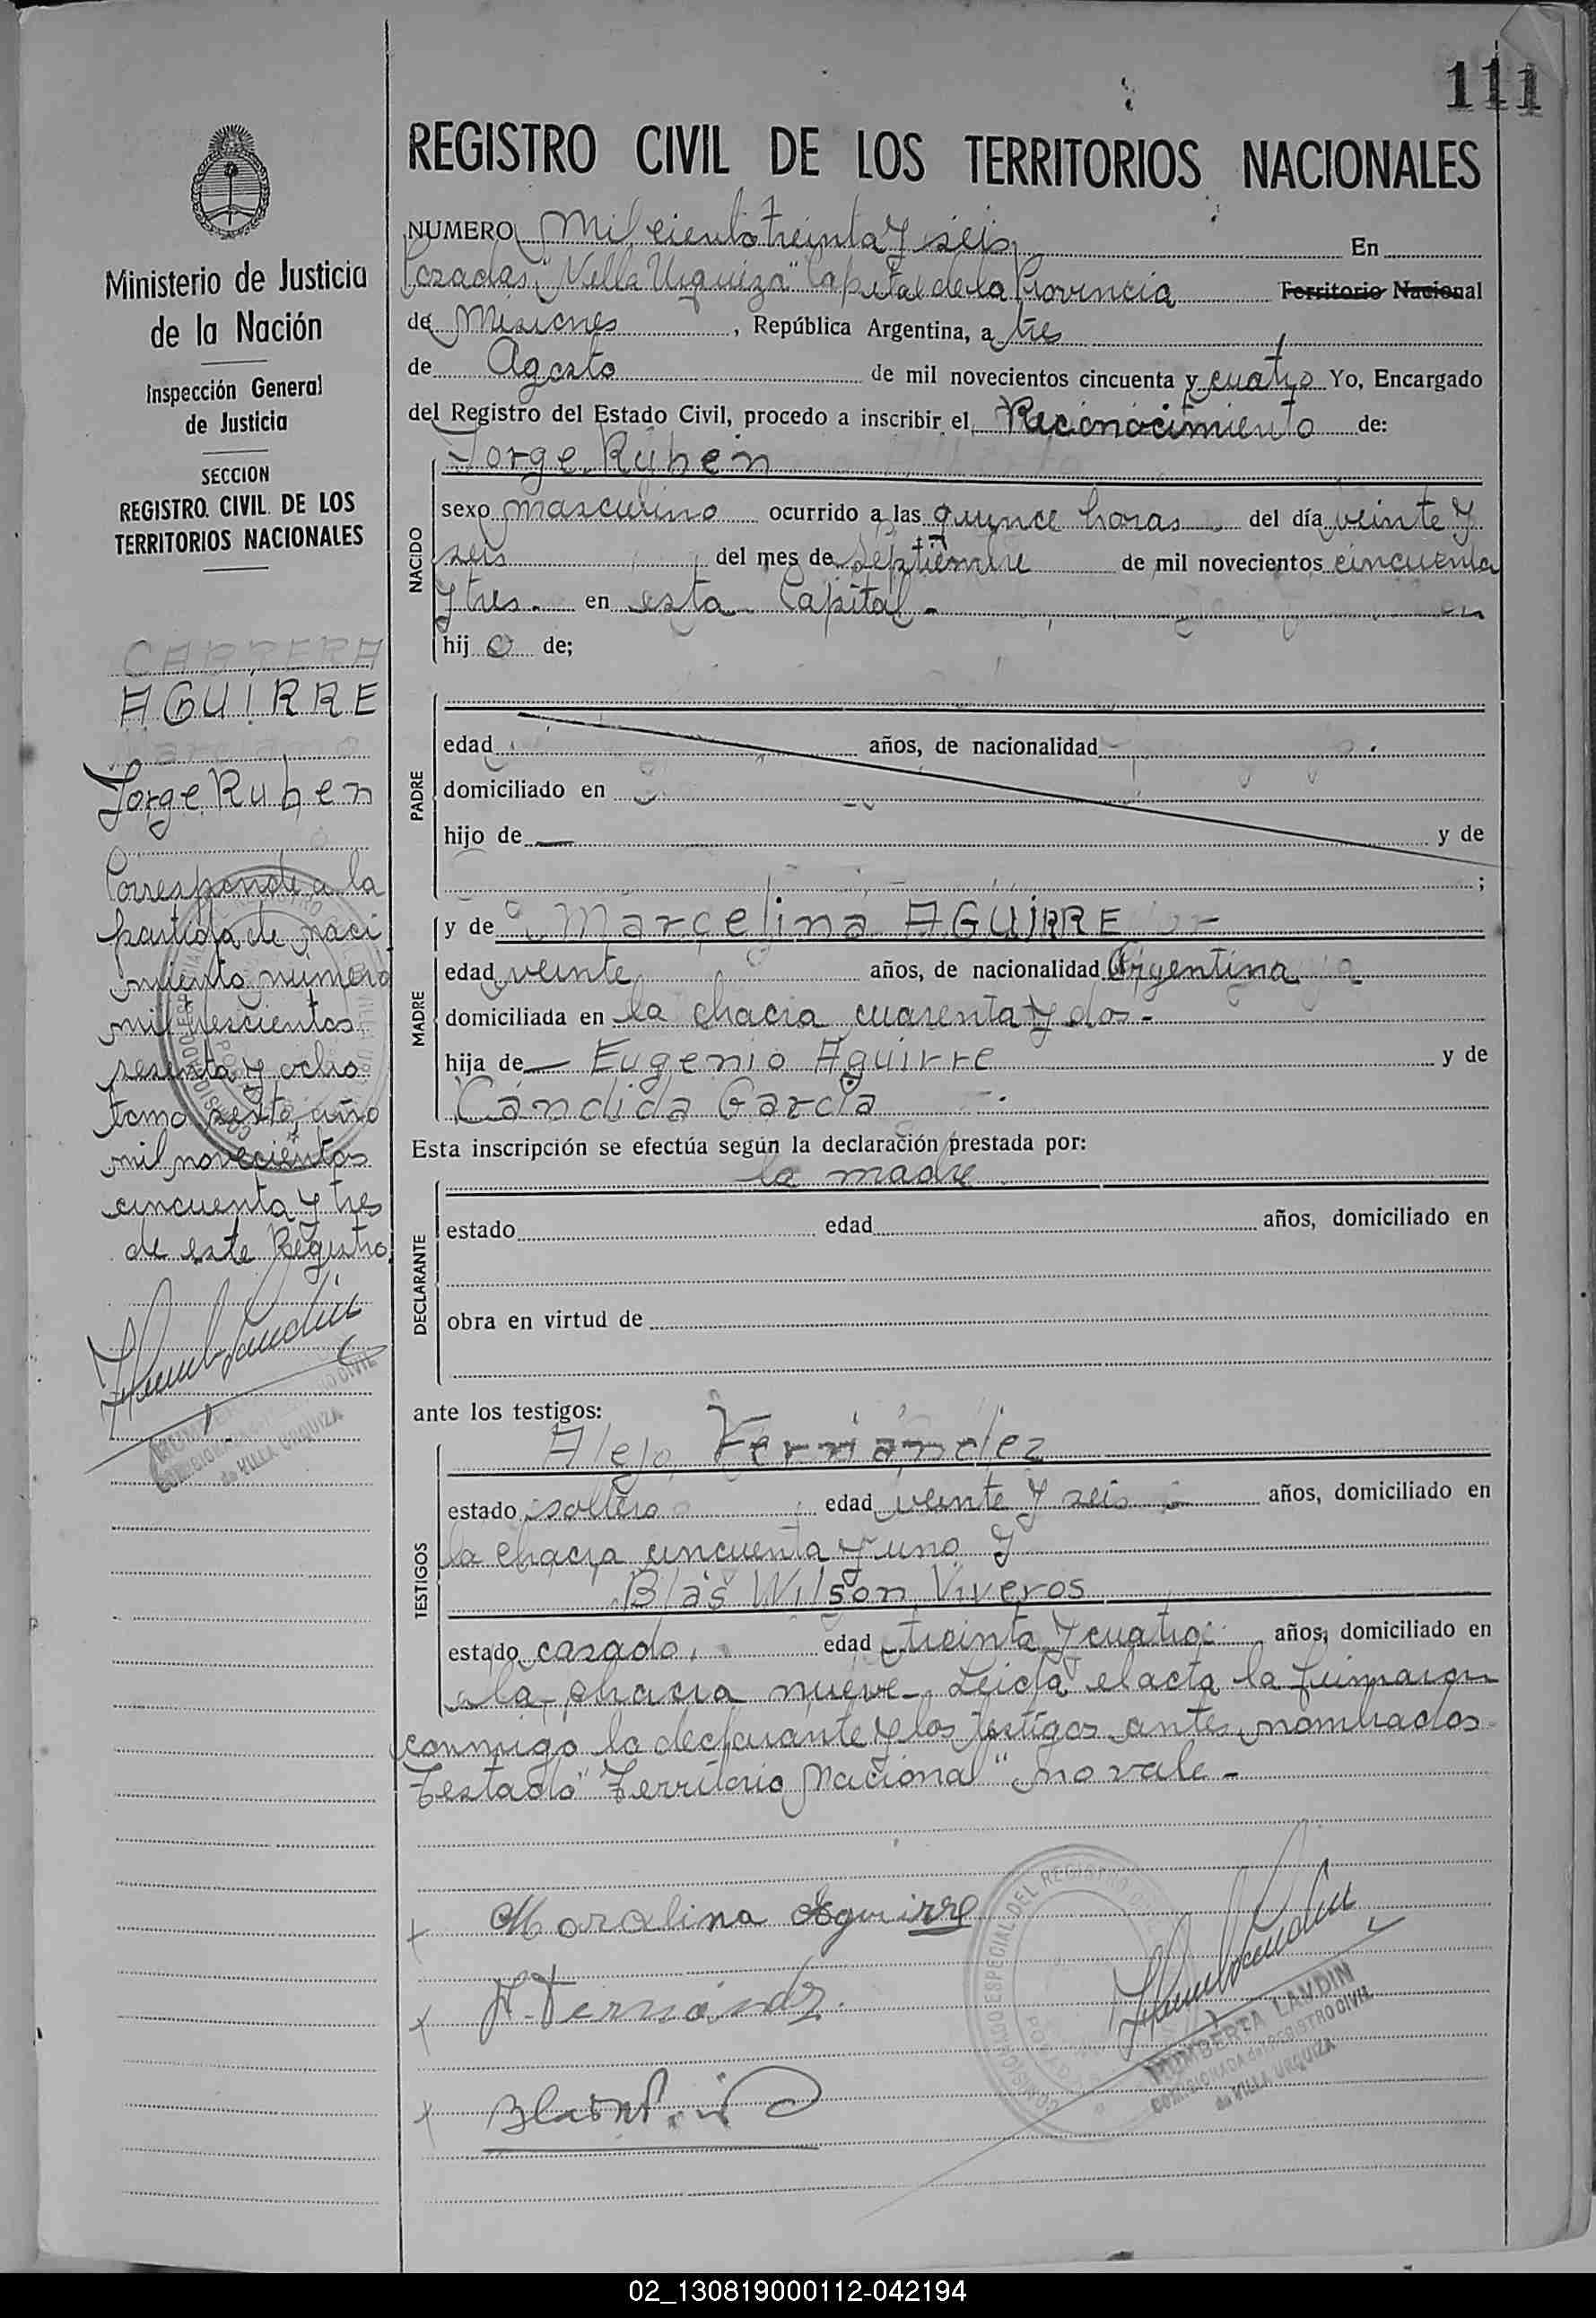 111
REGISTRO CIVIL DE LOS TERRITORIOS NACIONALES
NUMERO Mil ciento treinta y seis En
Posadas, "Villa Urquiza" Capital de la Provincia Territorio Nacional
de Misiones, República Argentina, a tres
de Agosto de mil novecientos cincuenta y cuatro Yo, Encargado
del Registro del Estado Civil, procedo a inscribir el Reconocimiento de:
NACIDO
Jorge Ruben
sexo masculino ocurrido a las quince horas del día veinte y
seis del mes de septiembre de mil novecientos cincuenta
y tres - en esta Capital -
hij o de;
PADRE
edad años, de nacionalidad
domiciliado en
hijo de — y de
;
MADRE
y de Marcelina AGUIRRE -
edad veinte años, de nacionalidad Argentina
domiciliada en la chacra cuarenta y dos -
hija de — Eugenio Aguirre y de
Cándida García
Esta inscripción se efectúa según la declaración prestada por:
DECLARANTE
la madre
estado edad años, domiciliado en
obra en virtud de
ante los testigos:
TESTIGOS
Alejo Fernández
estado soltero edad veinte y seis años, domiciliado en
la chacra cincuenta y uno y
Blás Wilson Viveros
estado casado, edad treinta y cuatro años, domiciliado en
la chacra nueve - Leida el acta la firmaron
conmigo la declarante y los testigos antes nombrados
Testado "Territorio Nacional" no vale -
x Marcelina Aguirre
x A. Fernández.
x
COMISIONADO ESPECIAL DEL REGISTRO CIVIL
HUMBERTA LANDIN
COMISIONADA del REGISTRO CIVIL
de VILLA URQUIZA
Ministerio de Justicia
de la Nación
Inspección General
de Justicia
SECCION
REGISTRO CIVIL DE LOS
TERRITORIOS NACIONALES
CABRERA
AGUIRRE
Jorge Ruben
Corresponde a la
partida de naci
miento número
mil trescientos
sesenta y ocho
tomo sexto, año
mil novecientos
cincuenta y tres
de este Registro.
REGISTRO CIVIL
de VILLA URQUIZA
02_130819000112-042194